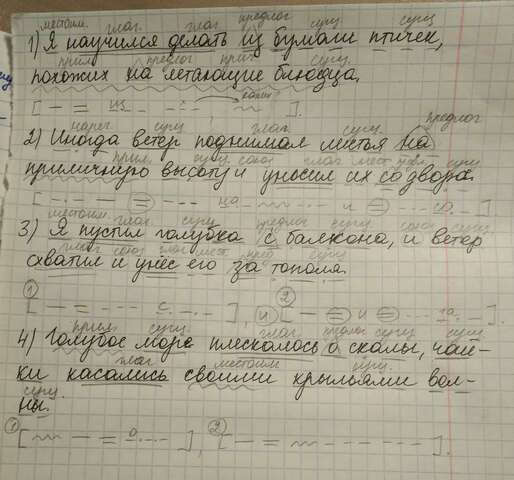 местоим. глаг. глаг. предлог сущ. сущ.
1) Я научился делать из бумаги птичек,
прил. предлог прил. сущ.
похожих на летающие блюдца.
[ из ].
нареч. сущ. глаг. сущ. предлог
2) Иногда ветер поднимал листья на
прил. сущ. союз глаг. мест. сущ.
приличную высоту и уносил их со двора.
[ на и со ]
местоим. глаг. сущ. предлог сущ. союз сущ.
3) Я пустил голубка с балкона, и ветер
глаг. союз глаг. мест. пред. сущ.
схватил и унёс его за тополя.
1 2
[ с ], и [ и за ].
прил. сущ. глаг. предлог сущ. сущ.
4) Голубое море плескалось о скалы, чай-
глаг. местоим. сущ.
ки касались своими крыльями вол-
сущ.
ны.
1 [ о ], 2 [ ].